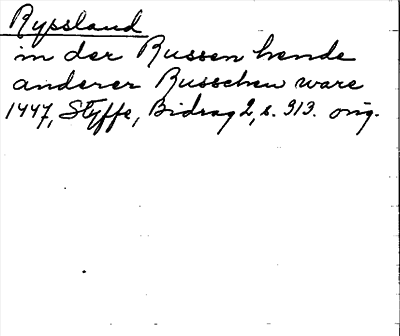 Ryssland
in der Russen hende
anderer Russchen ware
1447, Styffe, Bidrag 2, s. 313. orig.